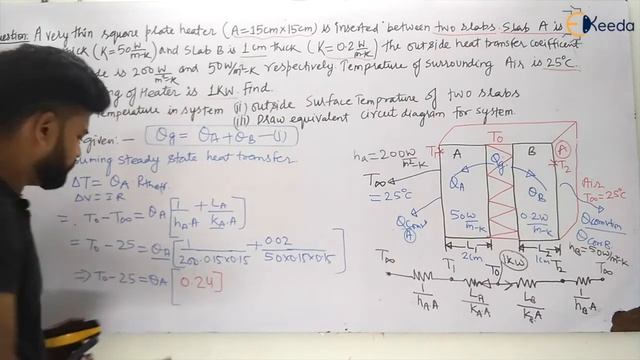 Question: A very thin square plate heater (A=15cm×15cm) is inserted between two slabs. Slab A is
ick (K=50 W/m-K) and Slab B is 1cm thick (K=0.2 W/m-K) the outside heat transfer coefficient
de is 200 W/m²-K and 50 W/m²-K respectively Temprature of Surrounding Air is 25°C.
ng of Heater is 1KW. Find.
temperature in system (ii) outside Surface Temprature of two slabs
(iii) Draw equivalent circuit diagram for system.
Ekeeda
given:- Qg = QA + QB —(1)
uming steady state heat transfer.
ΔT = QA Rth
ΔV = IR
∴ T0 - T∞ = QA [1/hA.A + LA/KA.A]
= T0 - 25 = QA [1/200×0.15×0.15 + 0.02/50×0.15×0.15]
⇒ T0 - 25 = QA [0.24]
hA = 200 W/m²-K
T∞ = 25°C
T1
A
T0
Qg
B
A
T2
QA
QB
Air
T∞ = 25°C
Qconv A
50 W/m-K
0.2 W/m-K
Qconv B
hB = 50 W/m²-K
L1
2cm
L2
1cm
1KW
T∞ T1 T0 T2 T∞
1/hAA LA/KAA LB/KBA 1/hBA